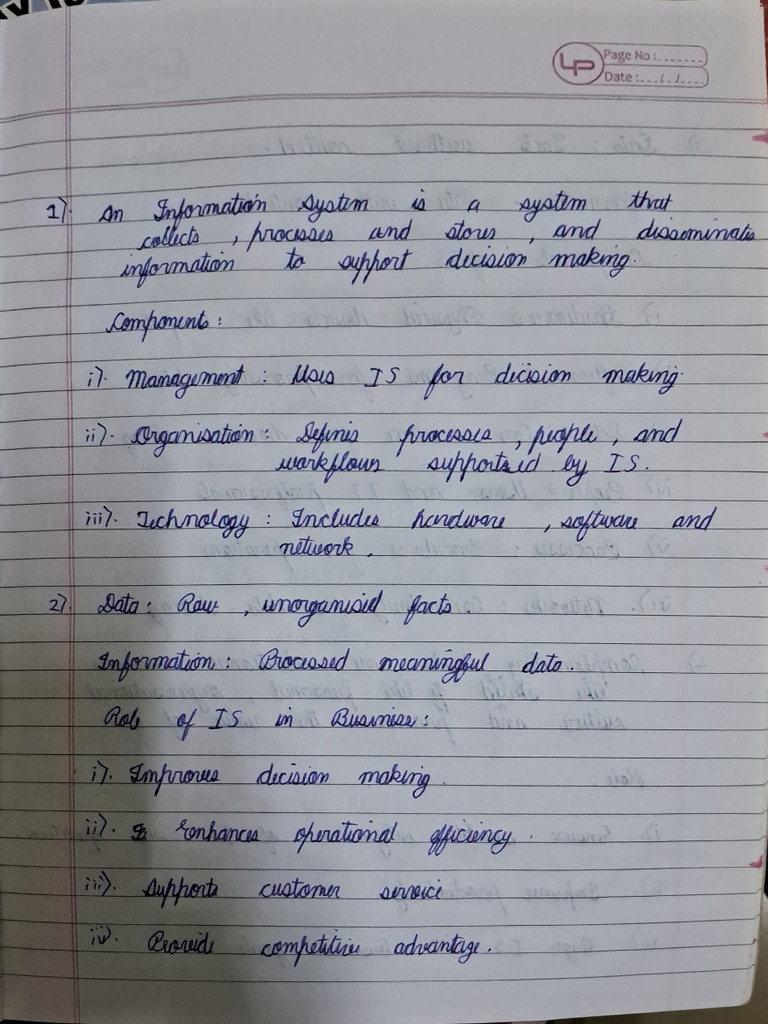 LP
Page No :.......
Date :...(../....
1). An Information System is a system that
collects , processes and stores , and disseminates
information to support decision making.
Components :
i). Management : Uses IS for decision making.
ii). Organisation : Defines processes , people , and
workflows supported by IS.
iii). Technology : Includes hardware , software and
network .
2). Data : Raw , unorganised facts
Information : Processed meaningful data .
Role of IS in Business :
i). Improves decision making .
ii). Enhances operational efficiency .
iii). Supports customer service
iv. Provide competitive advantage .